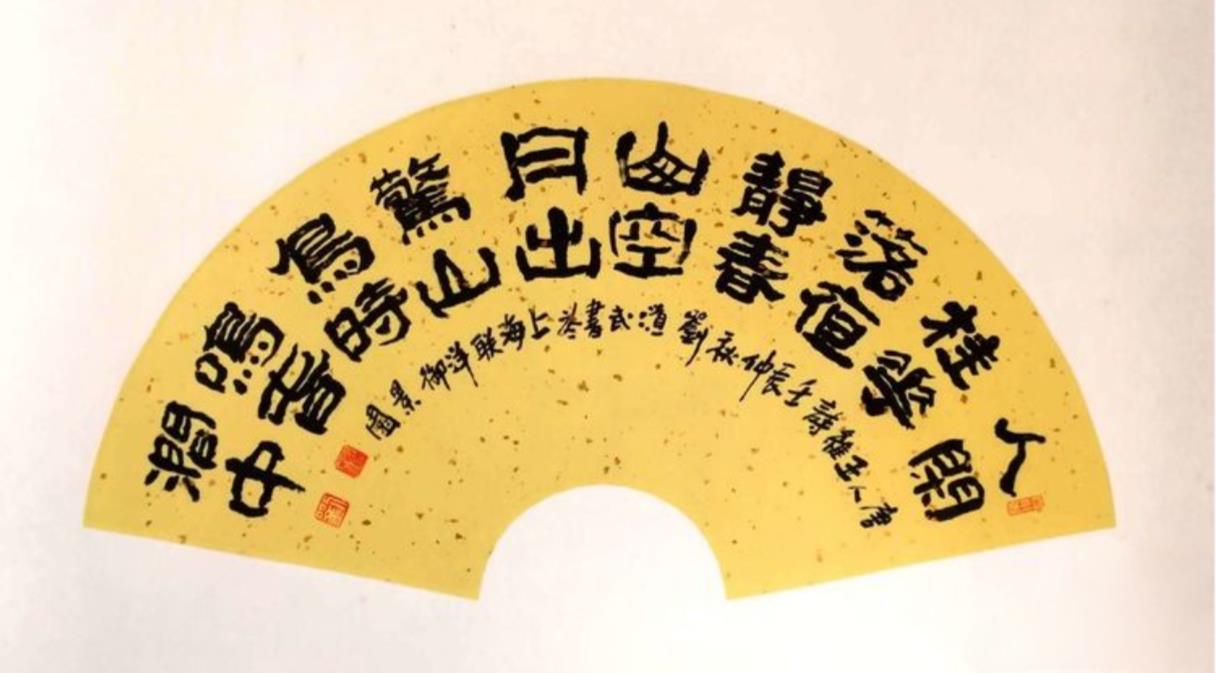 人閑
桂華
落夜
靜春
山空
月出
驚山
鳥時
鳴春
澗中
唐人王維詩壬辰仲秋劉道武書於上海联洋御景園